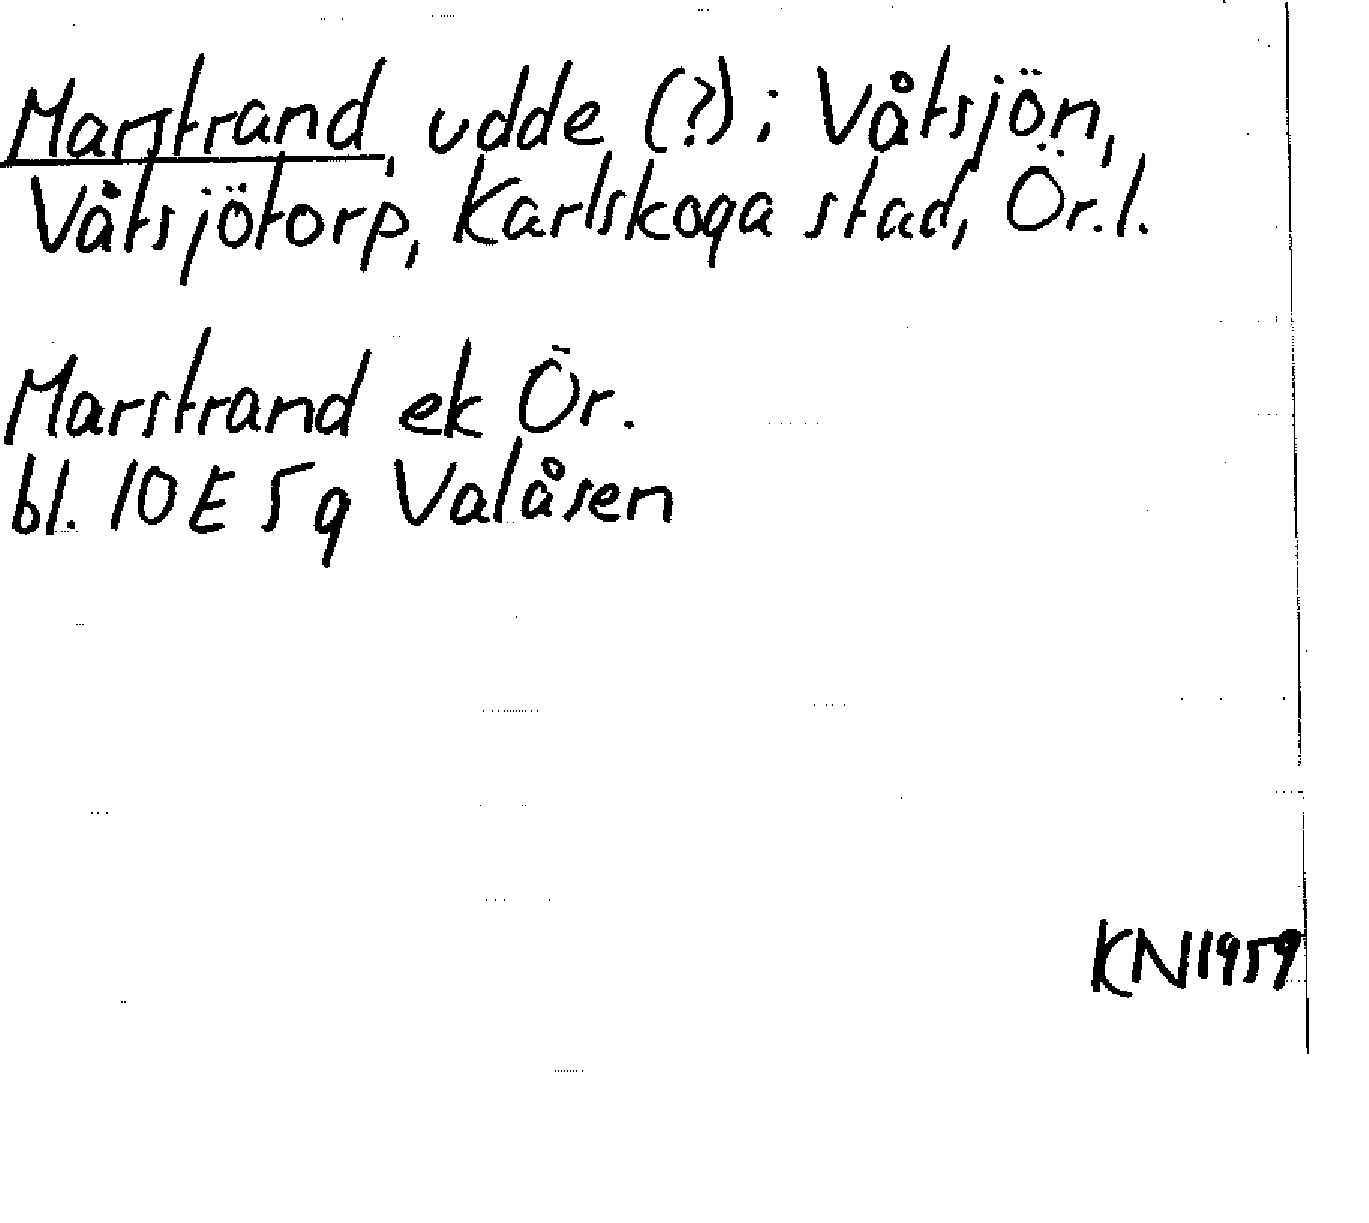 Marstrand, udde (?) i Våtsjön,
Våtsjötorp, Karlskoga stad, Ör. l.
Marstrand ek Ör.
bl. 10 E 5 g Valåsen
KN 1959